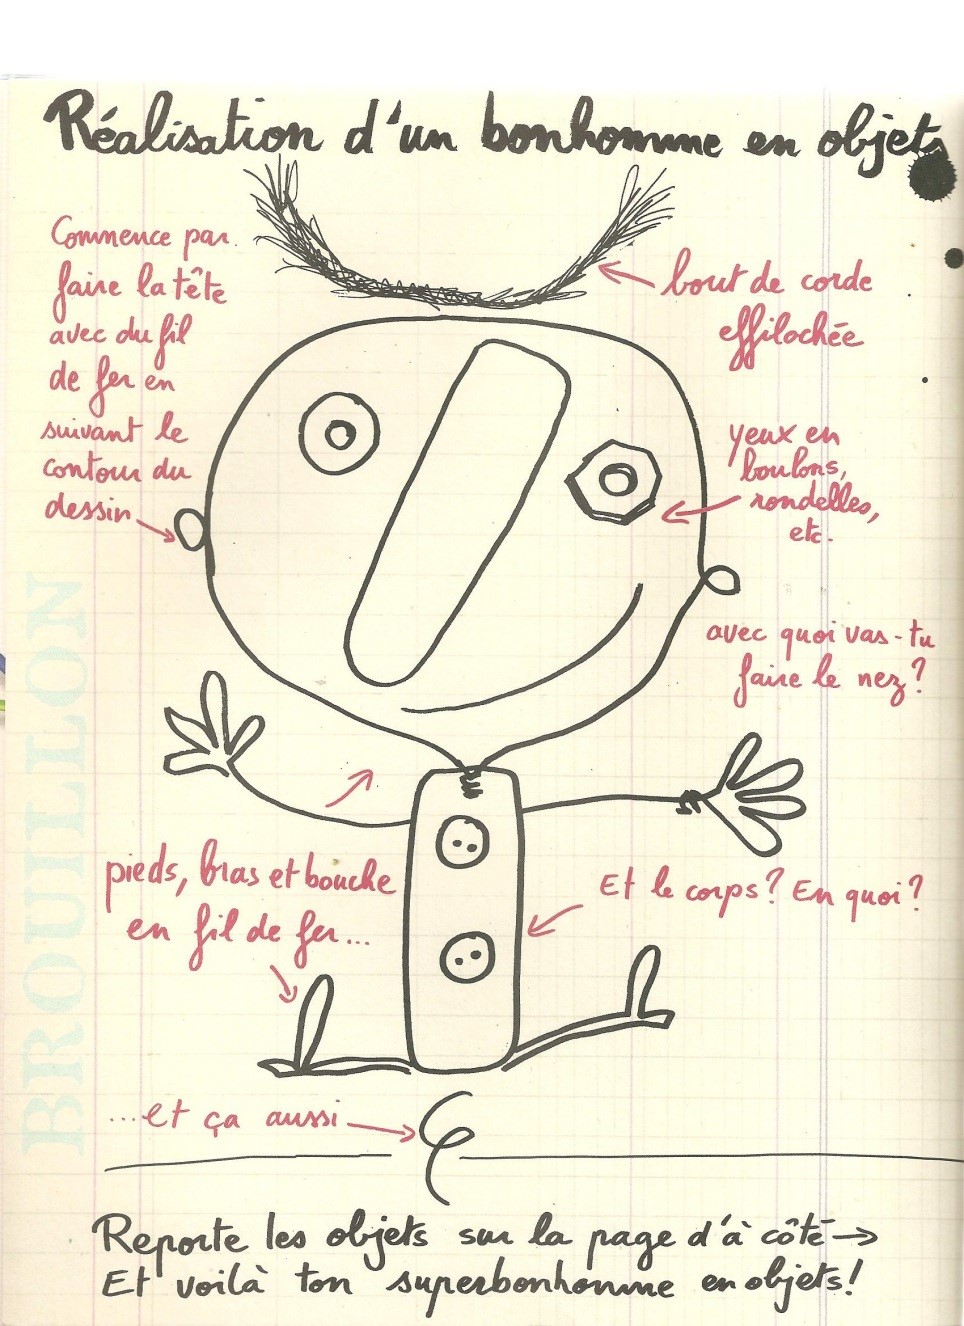 Réalisation d'un bonhomme en objets
Commence par
faire la tête
avec du fil
de fer en
suivant le
contour du
dessin
bout de corde
effilochée
yeux en
boulons,
rondelles,
etc.
avec quoi vas-tu
faire le nez?
pieds, bras et bouche
en fil de fer...
Et le corps? En quoi?
...et ça aussi
BROUILLON
Reporte les objets sur la page d'à côté →
Et voilà ton superbonhomme en objets!